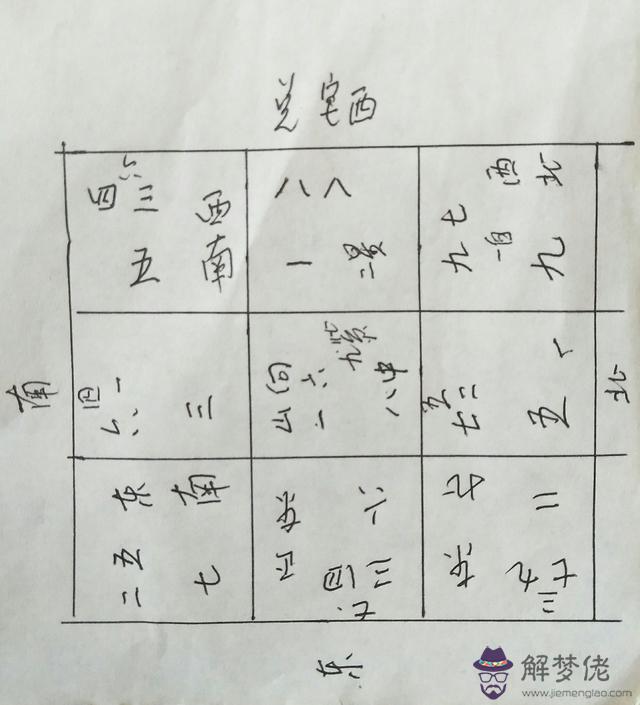 兑宅西
六
四 三 西
五 南
八 八
一 二层
西 北
九 七
一 九
南
四 一
六 三
向 六 九
山 一 八中
五 二
七 五
北
东 南
二 五 七
东 六
正 三 四
七
东 六 二
三 七 九
东
解梦佬
www.jiemenglao.com